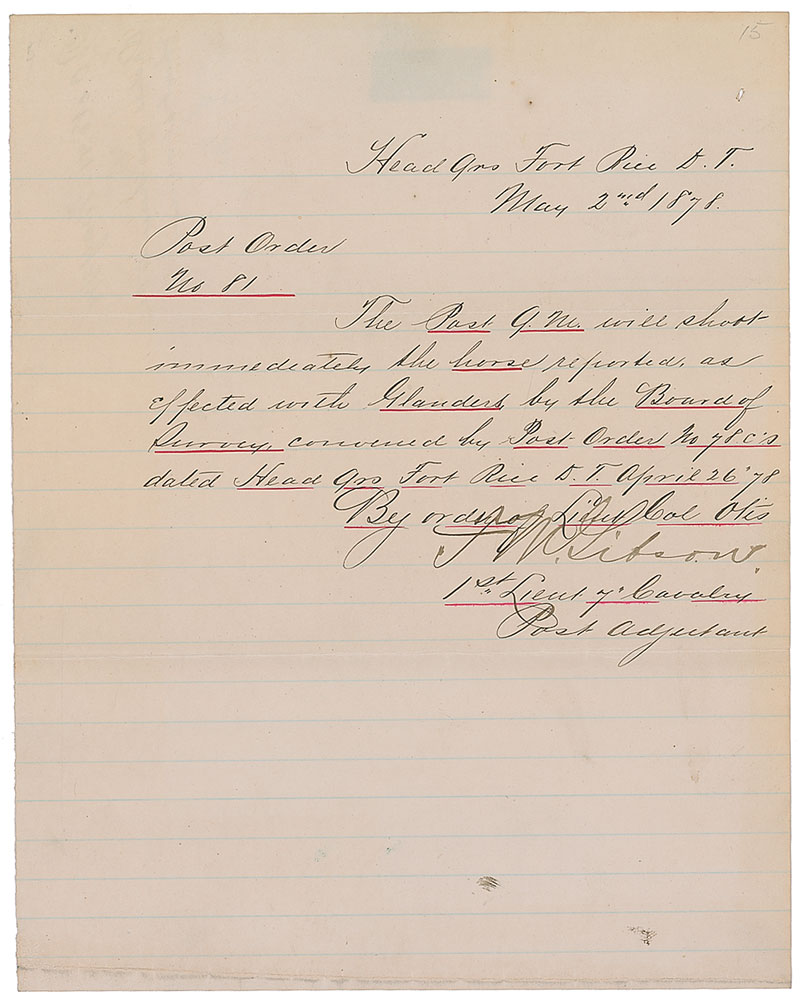 15
Head Qrs Fort Rice D. T.
May 2nd 1878.
Post Order
No 81
The Post Q. M. will shoot
immediately the horse reported, as
effected with Glanders, by the Board of
Survey, convened by Post Order No 78 c.s
dated Head Qrs Fort Rice D. T. April 26" 78
By order of Lieut Col Otis
F M Gibson
1st Lieut 7" Cavalry
Post Adjutant